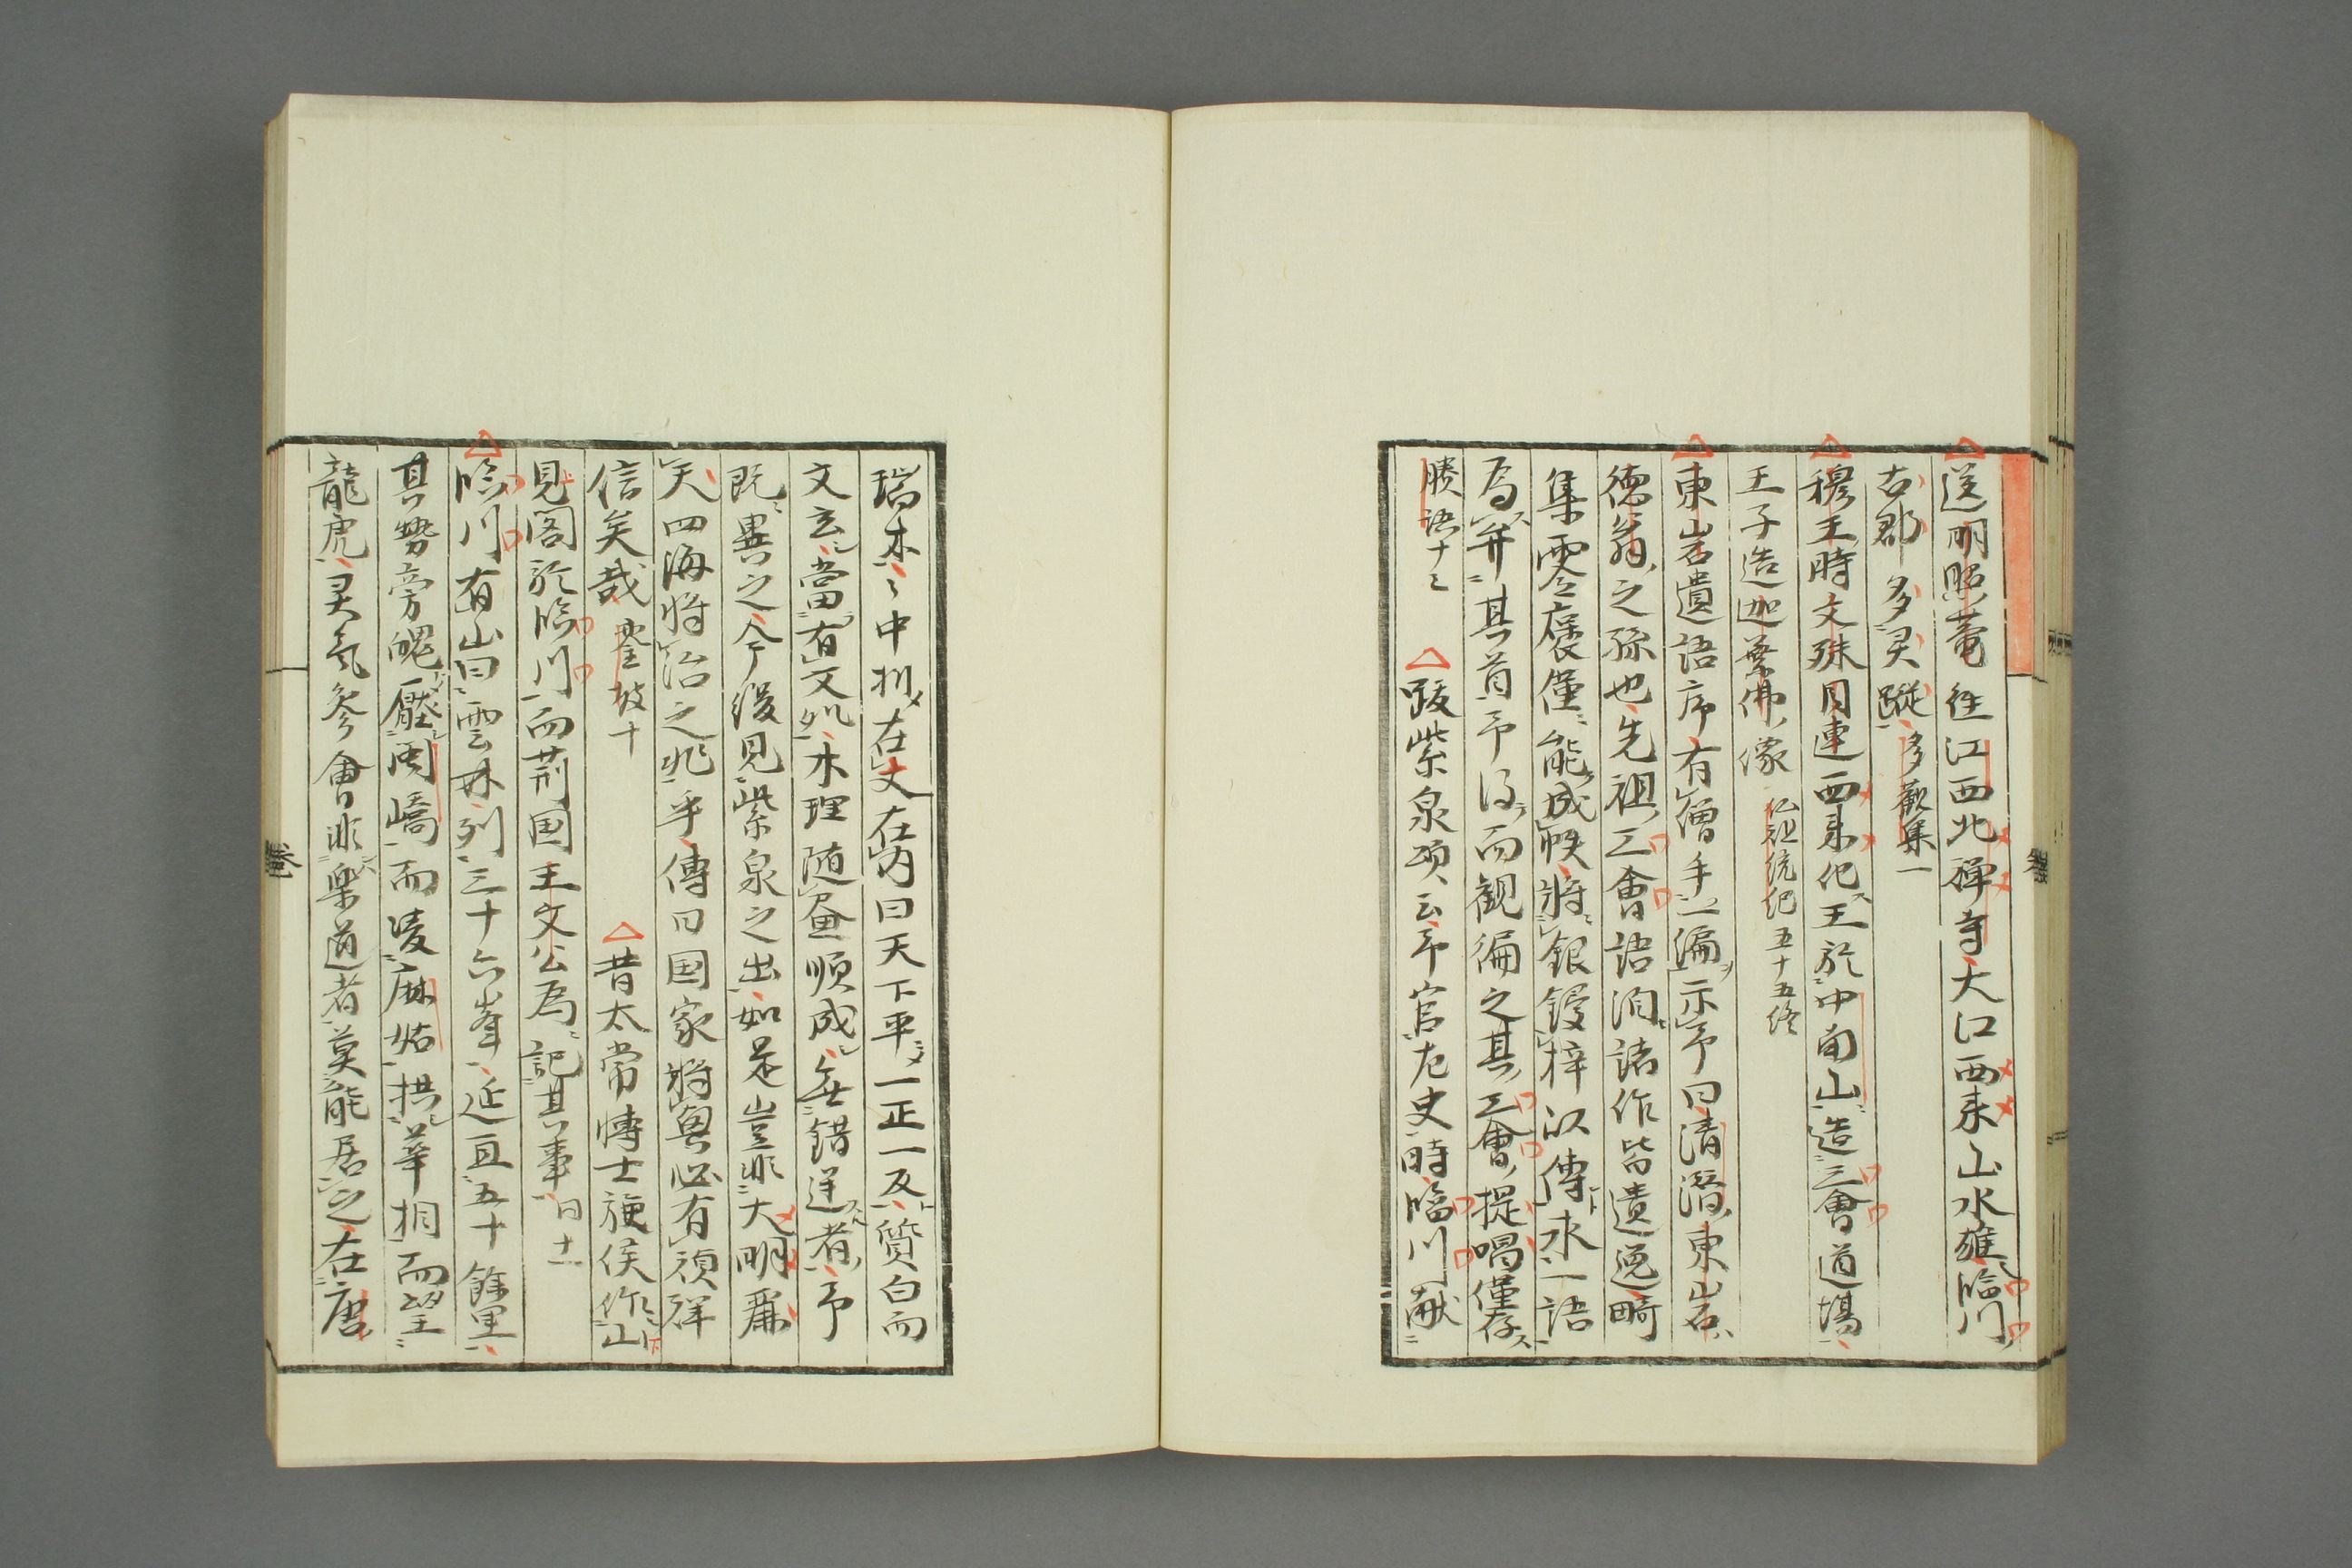 送明照菴住江西北禅寺大江西来山水雄臨川
古郡多灵蹤多歡集一
穆王時文殊目連西来化王於中南山造三會道場
王子造迦葉佛像仏祖統紀五十五終
東岩遺語序有僧手一編示予曰清潛東岩
徳翁之孫也先祖三會語洎諸作皆遺逸畸
集零褒僅能成帙將銀鋟梓以傳求一語
為弁其首予得而観徧之其三會提唱僅存
勝語十之 跋紫泉頌云予官左史時臨川献
瑞木之中析在文在内曰天下平一正一反質白而
文玄當有文処木理随畫順成無錯迕者予
既異之今復見紫泉之出如是豈非大明麗
天四海將治之兆乎傳曰国家將興必有禎祥
信矣哉銮坡十 昔太常博士施侯作山
見閣於臨川而荊国王文公為記其事同十一
臨川有山曰雲林列三十六峯延亘五十餘里
其勢旁魄壓閩嶠而凌麻姑拱華相而望
龍虎灵氣參會非樂道者莫能居之在唐
卷